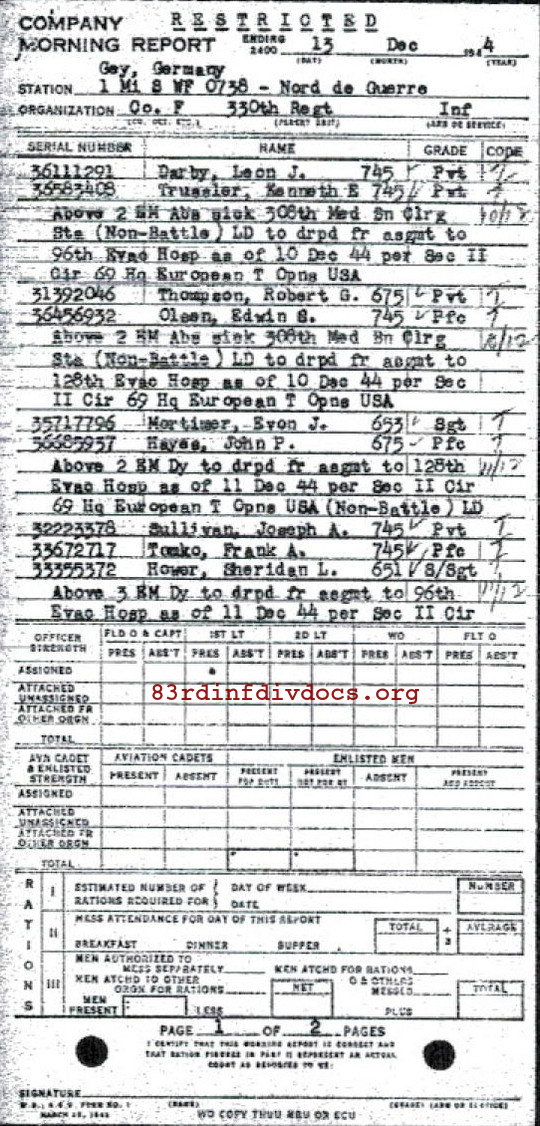 COMPANY RESTRICTED
MORNING REPORT ENDING 2400 13 Dec 194 4
(DAY) (MONTH) (YEAR)
Gey, Germany
STATION 1 Mi S WF 0738 - Nord de Guerre
ORGANIZATION Co. F 330th Regt Inf
(PARENT UNIT) (ARM OR SERVICE)
SERIAL NUMBER NAME GRADE CODE
36111291 Darby, Leon J. 745 Pvt
36583408 Trussler, Kenneth E 745 Pvt
Above 2 EM Abs sick 308th Med Bn Clrg
Sta (Non-Battle) LD to drpd fr asgmt to
96th Evac Hosp as of 10 Dec 44 per Sec II
Cir 69 Hq European T Opns USA
31392046 Thompson, Robert G. 675 Pvt
36456932 Olsen, Edwin S. 745 Pfc
Above 2 EM Abs sick 308th Med Bn Clrg
Sta (Non-Battle) LD to drpd fr asgmt to
128th Evac Hosp as of 10 Dec 44 per Sec
II Cir 69 Hq European T Opns USA
35717796 Mortimer, Evon J. 653 Sgt
36685937 Hayes, John P. 675 Pfc
Above 2 EM Dy to drpd fr asgmt to 128th 11/12
Evac Hosp as of 11 Dec 44 per Sec II Cir
69 Hq European T Opns USA (Non-Battle) LD
32223378 Sullivan, Joseph A. 745 Pvt
33672717 Tomko, Frank A. 745 Pfc
33355372 Rower, Sheridan L. 651 S/Sgt
Above 3 EM Dy to drpd fr asgmt to 96th 11/12
Evac Hosp as of 11 Dec 44 per Sec II Cir
OFFICER STRENGTH FLD O & CAPT 1ST LT 2D LT WO FLT O
PRES ABS'T PRES ABS'T PRES ABS'T PRES ABS'T PRES ABS'T
ASSIGNED
ATTACHED UNASSIGNED
83rdinfdivdocs.org
ATTACHED FR OTHER ORGN
TOTAL
AVN CADET & ENLISTED STRENGTH AVIATION CADETS ENLISTED MEN
PRESENT ABSENT PRESENT FOR DUTY PRESENT NOT FOR DY ABSENT PRESENT AND ABSENT
ASSIGNED
ATTACHED UNASSIGNED
ATTACHED FR OTHER ORGN
TOTAL
RATIONS
I ESTIMATED NUMBER OF DAY OF WEEK NUMBER
RATIONS REQUIRED FOR DATE
II MESS ATTENDANCE FOR DAY OF THIS REPORT TOTAL ÷ 3 AVERAGE
BREAKFAST DINNER SUPPER
III MEN AUTHORIZED TO MESS SEPARATELY MEN ATCHD FOR RATIONS
MEN ATCHD TO OTHER ORGN FOR RATIONS NET O & OTHERS MESSED TOTAL
MEN PRESENT LESS PLUS
PAGE 1 OF 2 PAGES
I CERTIFY THAT THIS MORNING REPORT IS CORRECT AND
THAT RATION FIGURES IN PART II REPRESENT AN ACTUAL
COUNT AS REPORTED TO ME:
SIGNATURE
W.D., A.G.O. FORM NO. 1 (NAME) (GRADE) (ARM OR SERVICE)
MARCH 1943
WD COPY THRU MRU OR ECU